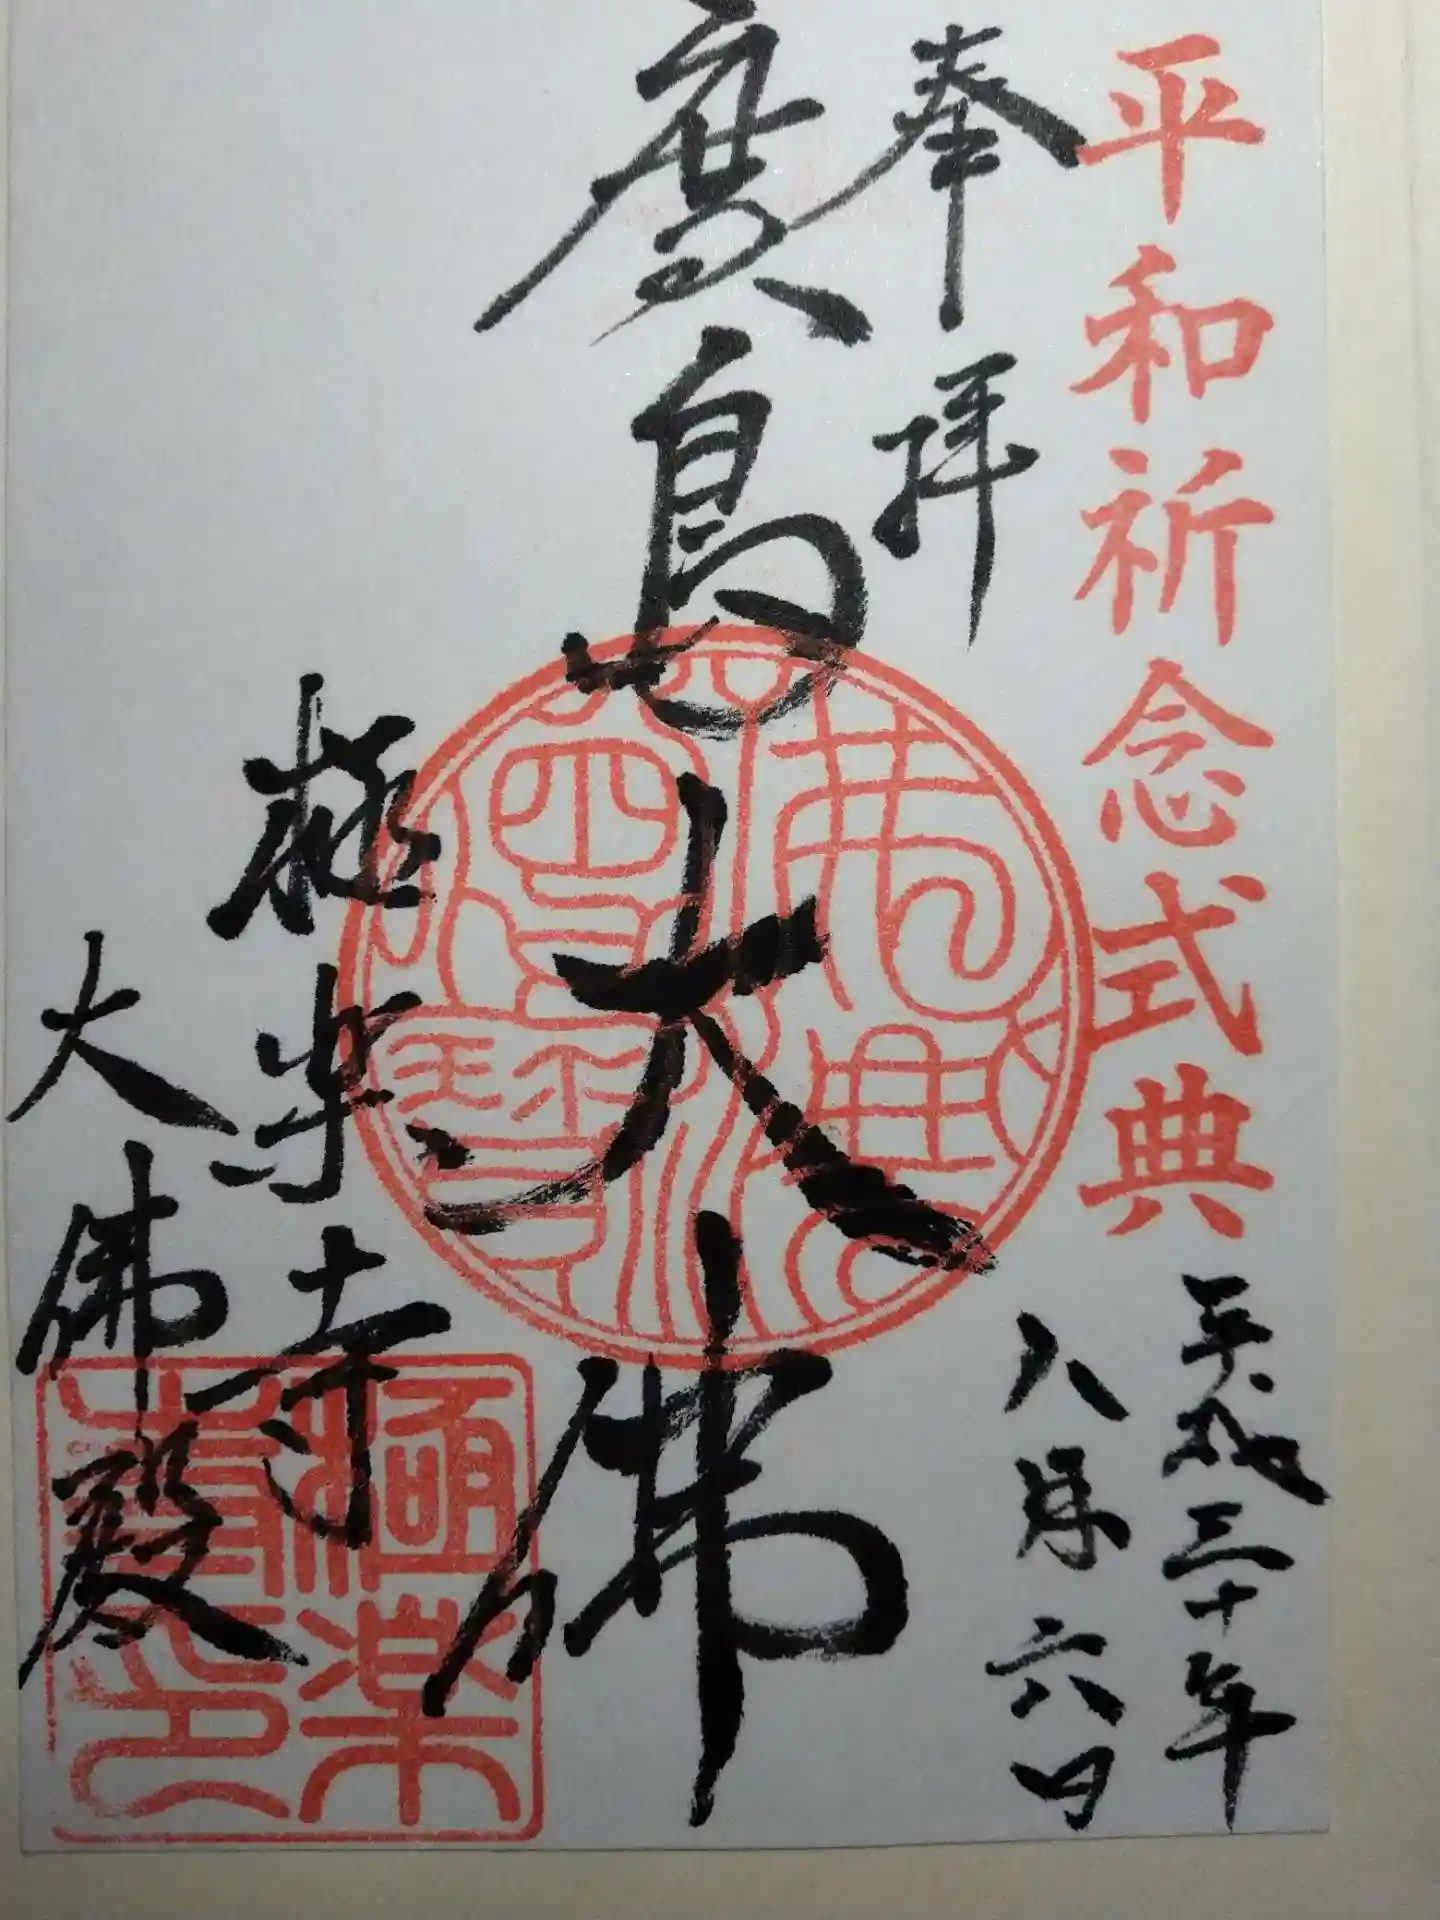 平和祈念式典
平成三十年
八月六日
奉拝
廣島大佛
極楽寺
大佛殿
佛法僧寶
極楽寺印